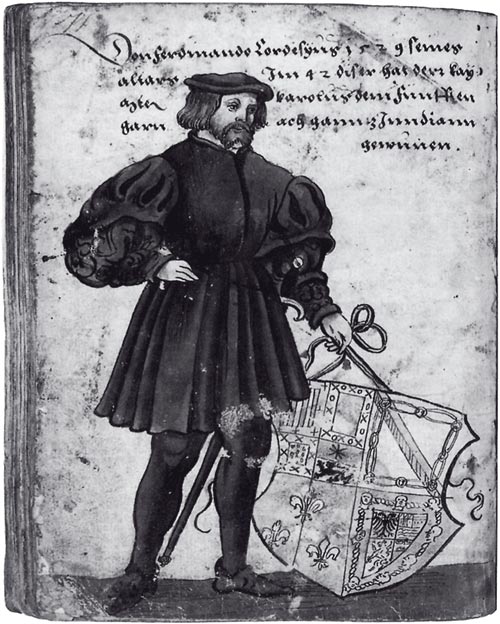 Don ferdinando Cordesyus 1529 seines
altars Im 42 diser hat derr kay
karolus dem funfften
ach ganntz Inndiann
gewunnen.